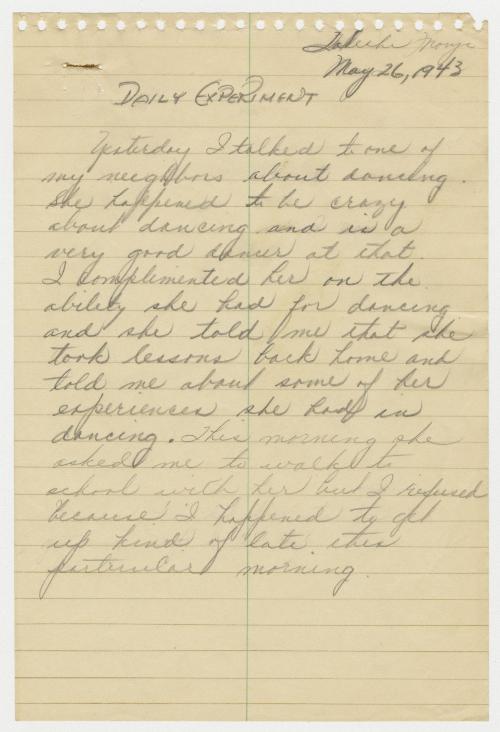 May 26, 1943
DAILY EXPERIMENT
Yesterday I talked to one of
my neighbors about dancing.
She happened to be crazy
about dancing and is a
very good dancer at that.
I complimented her on the
ability she had for dancing
and she told me that she
took lessons back home and
told me about some of her
experiences she had in
dancing. This morning she
asked me to walk to
school with her but I refused
because I happened to get
up kind of late this
particular morning.